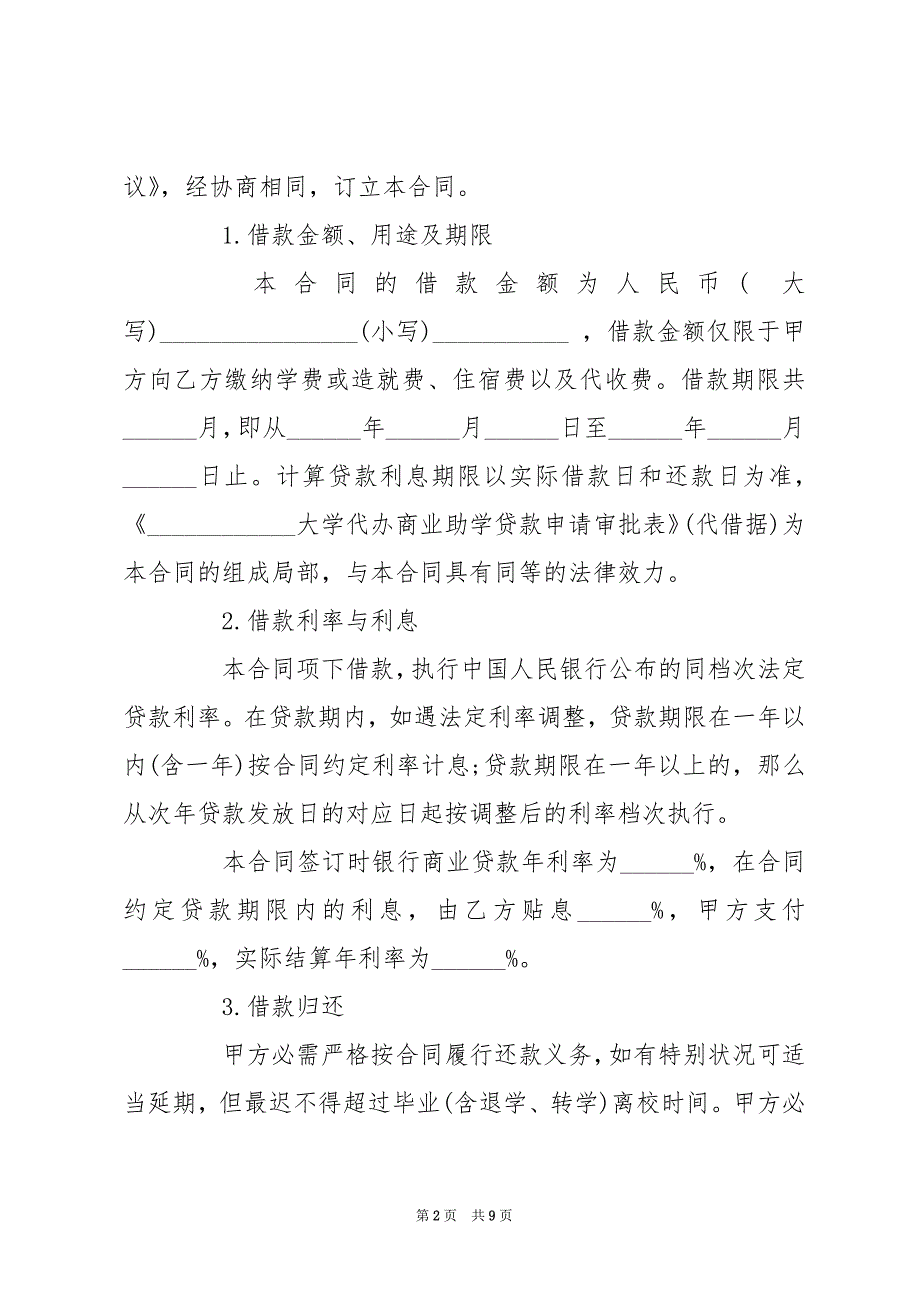 议》，经协商相同，订立本合同。
1.借款金额、用途及期限
本合同的借款金额为人民币( 大
写)________________(小写)___________ ，借款金额仅限于甲
方向乙方缴纳学费或造就费、住宿费以及代收费。借款期限共
______月,即从______年______月______日至______年______月
______日止。计算贷款利息期限以实际借款日和还款日为准，
《____________大学代办商业助学贷款申请审批表》(代借据)为
本合同的组成局部，与本合同具有同等的法律效力。
2.借款利率与利息
本合同项下借款,执行中国人民银行公布的同档次法定
贷款利率。在贷款期内，如遇法定利率调整，贷款期限在一年以
内(含一年)按合同约定利率计息;贷款期限在一年以上的，那么
从次年贷款发放日的对应日起按调整后的利率档次执行。
本合同签订时银行商业贷款年利率为______%，在合同
约定贷款期限内的利息，由乙方贴息______%，甲方支付
______%，实际结算年利率为______%。
3.借款归还
甲方必需严格按合同履行还款义务,如有特别状况可适
当延期，但最迟不得超过毕业(含退学、转学)离校时间。甲方必
第 2 页 共 9 页